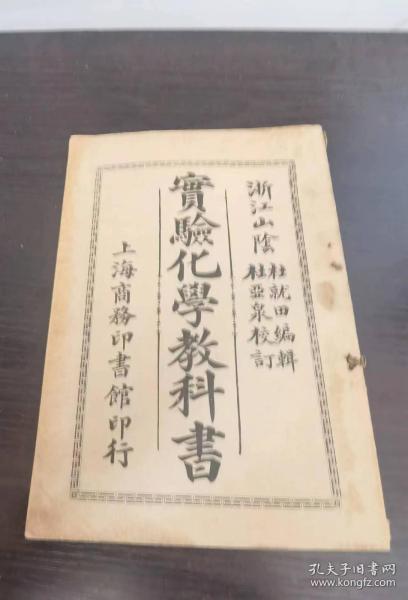 浙江山陰
杜就田編輯
杜亞泉校訂
實驗化學教科書
上海商務印書館印行
孔夫子旧书网
www.kongfz.com